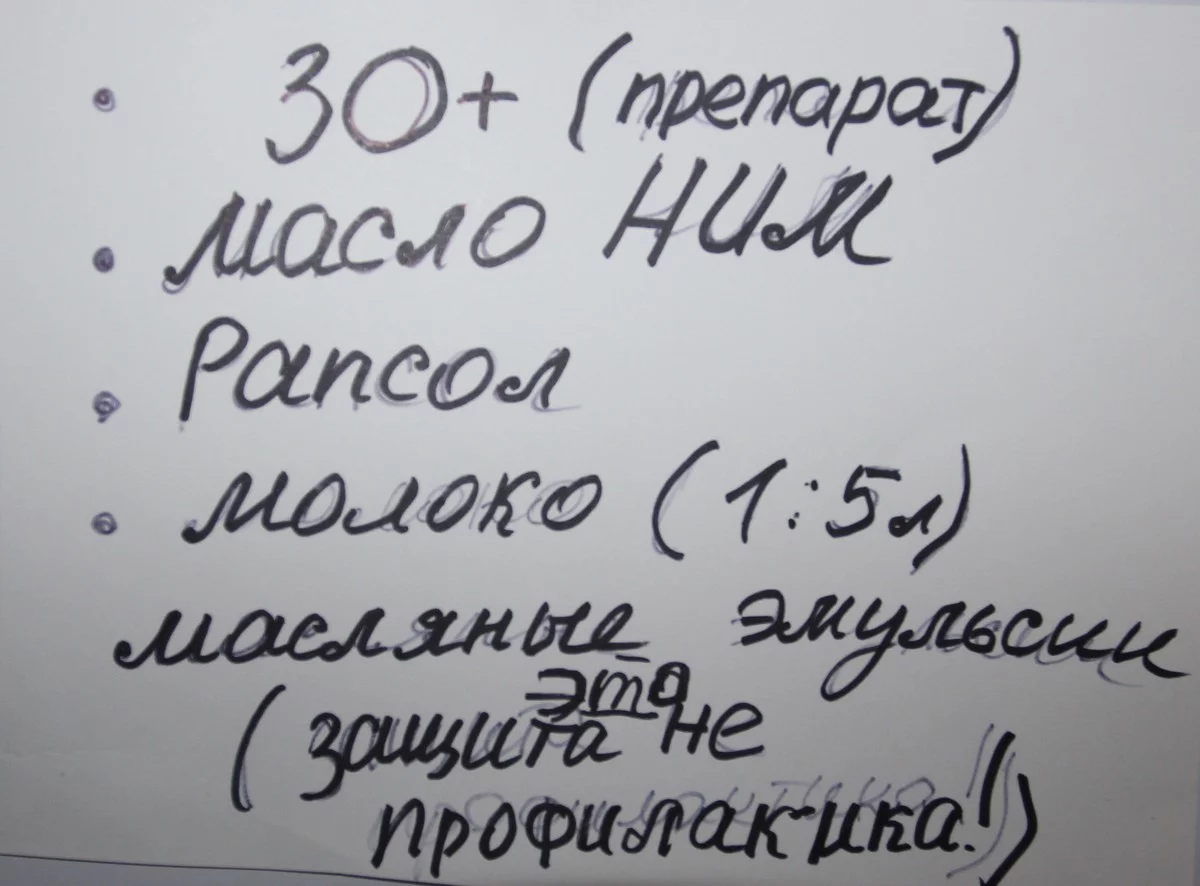 • 30+ (препарат)
• масло НИМ
• Рапсол
• молоко (1:5л)
масляные эмульсии
это
(защита не
профилактика!)